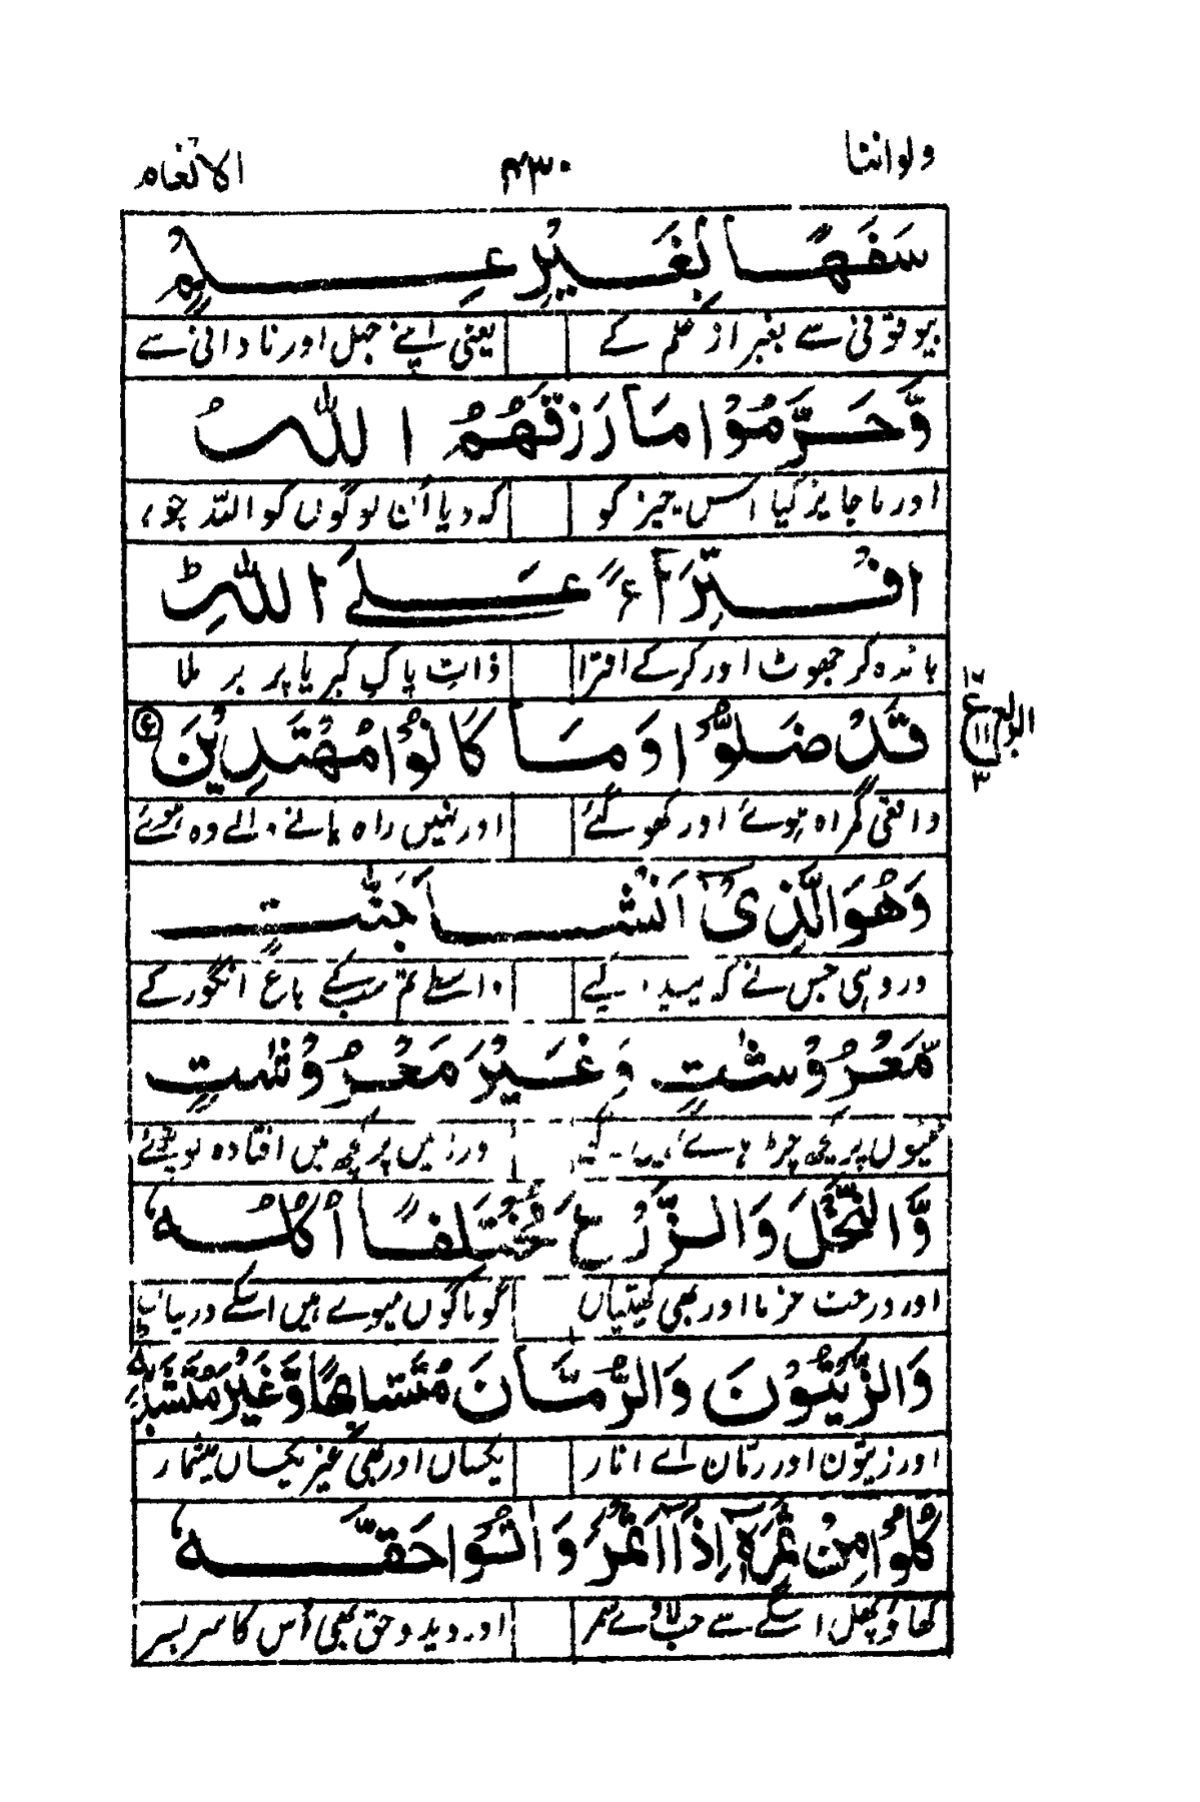 ولواننا ۴۳۰ الانعام
سَفَهًۢا بِغَيْرِ عِلْمٍ
بیوقوفی سے بغیر از علم کے یعنی اپنے جہل اور نادانی سے
وَّحَرَّمُوْا مَا رَزَقَهُمُ اللّٰهُ
اور ناجایز کیا اس چیز کو کہ دیا اُن لوگوں کو اللہ جو
افْتِرَآءً عَلَى اللّٰهِ ؕ
باندہ کر جھوٹ اور کرکے افترا ذاتِ پاک کبریا پر بر ملا
قَدْ ضَلُّوْا وَمَا كَانُوْا مُهْتَدِيْنَ
واقعی گمراہ ہوئے اور کھو گئے اور نہیں راہ پانے والے وہ ہوئے
الربع ۳ ع ۱۱ ۳
وَهُوَ الَّذِىْٓ اَنْشَاَ جَنّٰتٍ
اور وہی جس نے کہ پیدا کیے واسطے تم سب کے باغ انگور کے
مَّعْرُوْشٰتٍ وَّغَيْرَ مَعْرُوْشٰتٍ
ٹٹیوں پر کچھ چڑہاے اور زمیں پر کچھ ہیں افتادہ لوٹے
وَّالنَّخْلَ وَالزَّرْعَ مُخْتَلِفًا اُكُلُهٗ
اور درخت خرما اور بھی کھیتیاں گوناگوں میوے ہیں اسکے درمیاں
وَالزَّيْتُوْنَ وَالرُّمَّانَ مُتَشَابِهًا وَّغَيْرَ مُتَشَابِهٍ
اور زیتون اور رمّان اے انار یکساں اور بھی غیر یکساں بیشمار
كُلُوْا مِنْ ثَمَرِهٖٓ اِذَآ اَثْمَرَ وَاٰتُوْا حَقَّهٗ
کھاؤ پھل اسکے سے جب لاوے ثمر اور دیدو حق بھی اُس کا سر بسر